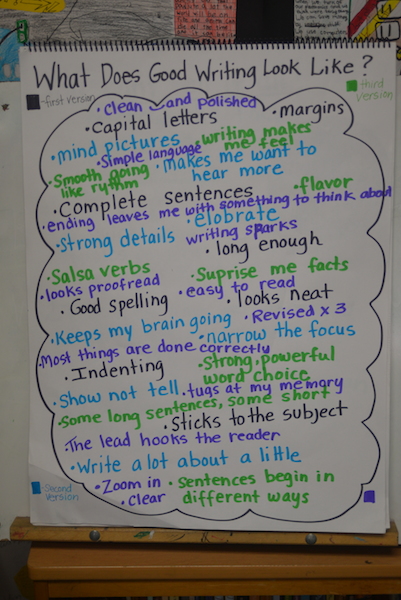 What Does Good Writing Look Like?
-first version
third version
•clean and polished
•Capital letters
•margins
•mind pictures
•writing makes me feel
•Simple language
•Smooth going like rythm
•makes me want to hear more
•Complete sentences
•flavor
•ending leaves me with something to think about
•elobrate
•Strong details
writing sparks
•long enough
•Salsa verbs
•Suprise me facts
•looks proofread
•easy to read
•Good spelling
•looks neat
•Keeps my brain going
•Revised x 3
•narrow the focus
•Most things are done correctly
•Indenting
•Strong, powerful word choice
•Show not tell
•tugs at my memory
•Some long sentences, some short
•Sticks to the subject
•The lead hooks the reader
•Write a lot about a little
•Zoom in
•Sentences begin in different ways
•Clear
-Second version